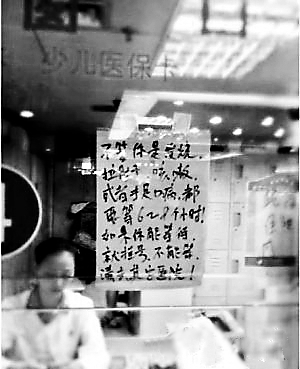 少儿医保卡
不管你是发烧,
拉肚子,咳嗽
或者手足口病,都
要等6~8小时!
如果你能等待,
就挂号,不能等,
请去其它医院!